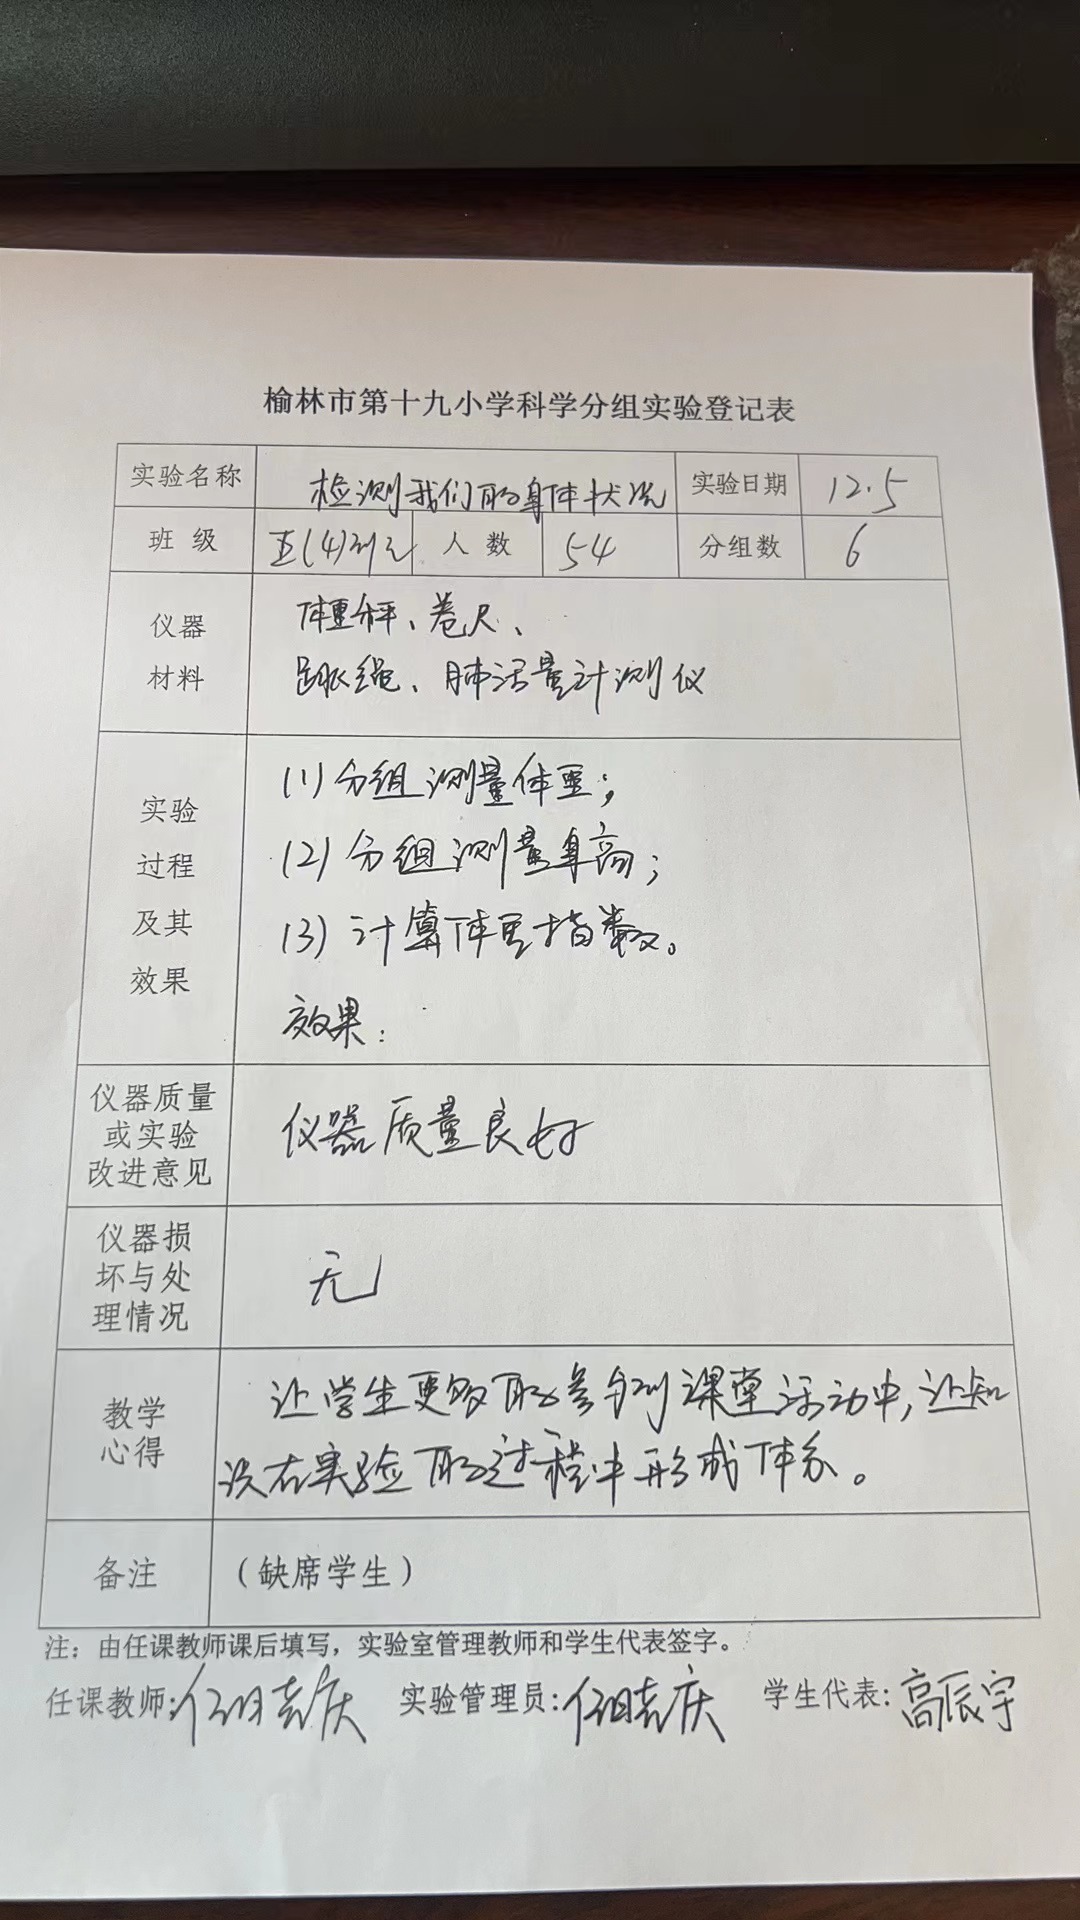 榆林市第十九小学科学分组实验登记表
实验名称 检测我们的身体状况 实验日期 12.5
班级 五(4)班 人数 54 分组数 6
仪器
材料
体重秤、卷尺、
跳绳、肺活量计测仪
实验
过程
及其
效果
(1)分组测量体重;
(2)分组测量身高;
(3)计算体重指数。
效果:
仪器质量
或实验
改进意见
仪器质量良好
仪器损
坏与处
理情况
无
教学
心得
让学生更多的参与到课堂活动中,让知
识在实验的过程中形成体系。
备注 (缺席学生)
注:由任课教师课后填写,实验室管理教师和学生代表签字。
任课教师: 实验管理员: 学生代表:高辰宇